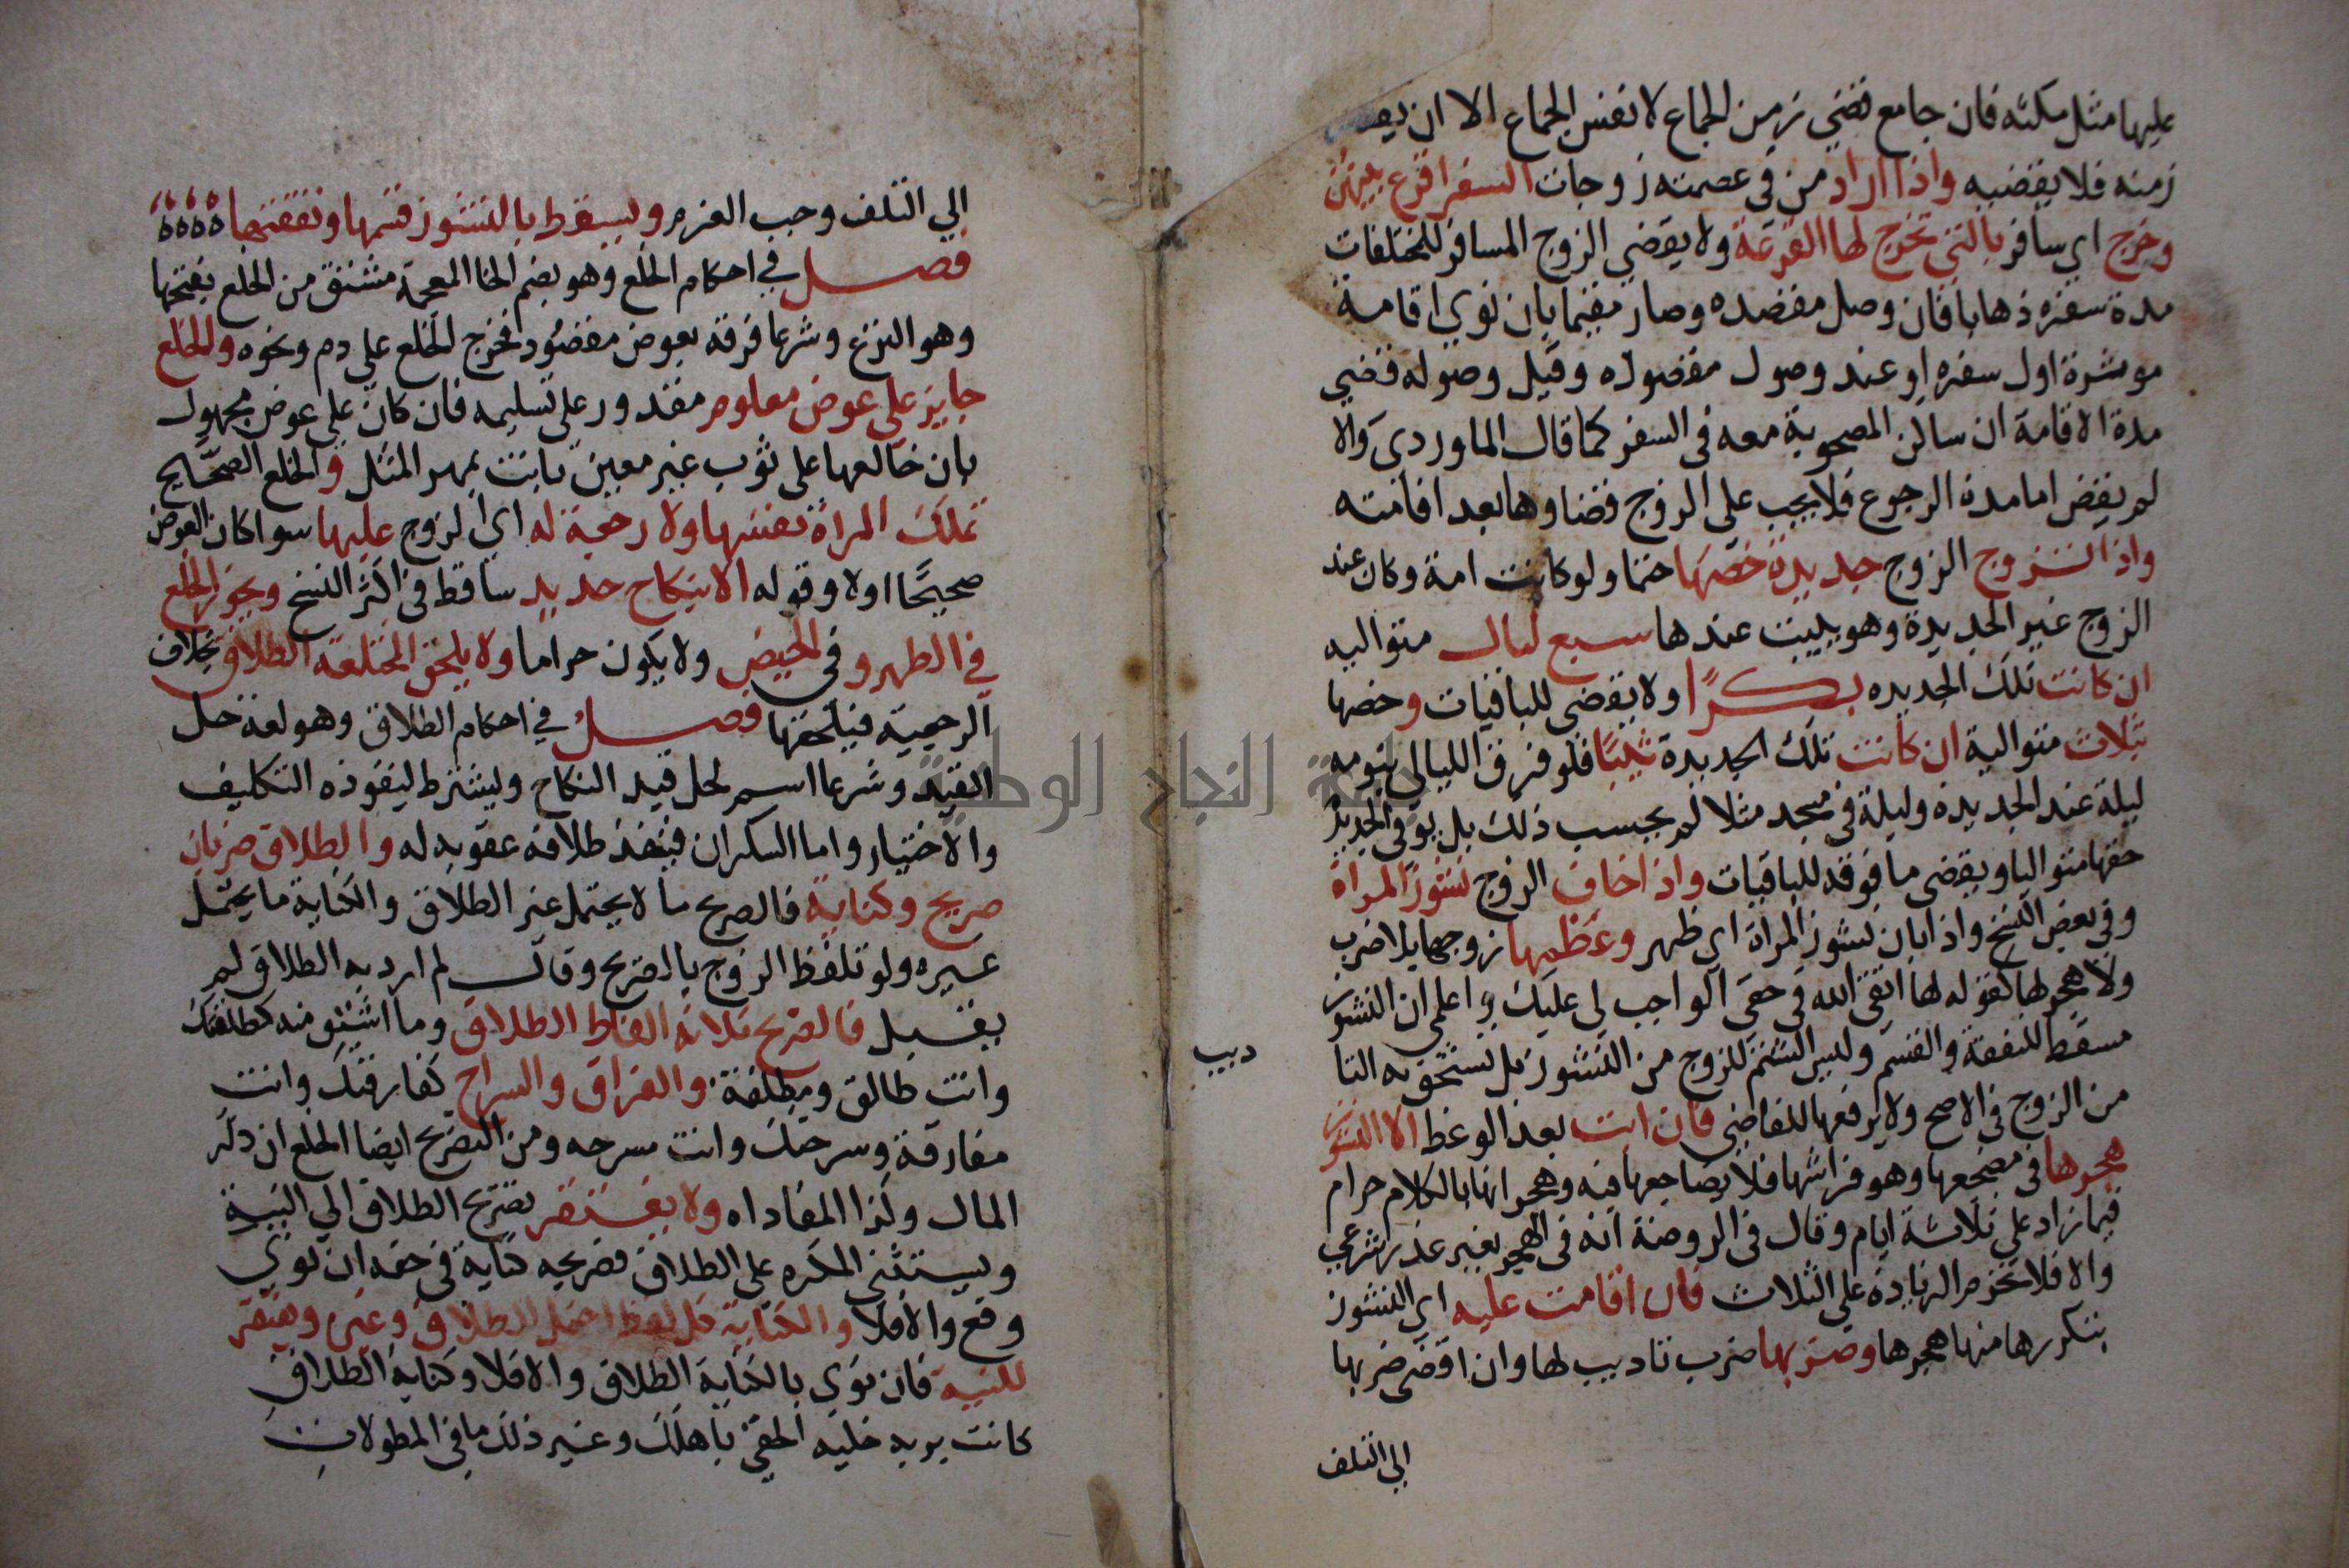 عليها مثل مكثه فان جامع قضي زمن الجماع لا نفس الجماع الا ان يقصر
زمنه فلا يقضيه واذا اراد من في عصمته زوجات السفر اقرع بينهن
وخرج اي سافر بالتي تخرج لها القرعة ولا يقضي الزوج المسافر للمختلفات
مدة سفره ذهابا فان وصل مقصده وصار مقيما بان نوي اقامة
موثرة اول سفره او عند وصول مقصوده وقبل وصوله قضي
مدة الاقامة ان ساكن المصحوبة معه في السفر كما قال الماوردي والا
لم يقض اما مدة الرجوع فلا يجب علي الزوج قضاوها بعد اقامته
واذا تزوج الزوج جديدة خصها حتما ولو كانت امة وكان عند
الزوج غير الجديدة وهو يبيت عندها سبع ليال متواليه
ان كانت تلك الجديده بكرًا ولا يقضي للباقيات وخصها
بثلاث متوالية ان كانت تلك الجديدة ثيبًا فلو فرق الليالي بنومه
ليلة عند الجديدة وليلة في مسجد مثلا لم يحسب ذلك بل يوفي الجديدة
حقها متواليا ويقضي ما فرقه للباقيات واذا خاف الزوج نشوز المراة
وفي بعض النسخ واذا بان نشوز المراة اي ظهر وعظها زوجها بلا ضرب
ولا هجر لها كقوله لها اتقي الله في حقي الواجب لي عليك واعلمي ان النشوز
مسقط للنفقة والقسم وليس الشتم للزوج من النشوز بل تستحق به التا
دبيب
من الزوج في الاصح ولا يرفعها للقاضي فان ابت بعد الوعظ الا النشوز
هجرها في مضجعها وهو فراشها فلا يضاجعها فيه وهجرانها بالكلام حرام
فيما زاد علي ثلاثة ايام وقال في الروضة انه في الهجر بغير عذر شرعي
والا فلا تحرم الزيادة علي الثلاث فان اقامت عليه اي النشوز
بتكررها منها هجرها وضربها ضرب تاديب لها وان افضي ضربها
الي التلف
الي التلف وجب الغرم ويسقط بالنشوز قسمها ونفقتها
فصل في احكام الخلع وهو بضم الخا المعجمة مشتق من الخلع بفتحها
وهو النزع وشرعا فرقة بعوض مقصود فخرج الخلع علي دم ونحوه والخلع
جايز علي عوض معلوم مقدور علي تسليمه فان كان علي عوض مجهول
بان خالعها علي ثوب غير معين بانت بمهر المثل والخلع الصحيح
تملك المراة نفسها ولا رجعة له اي الزوج عليها سوا كان العوض
صحيحًا اولا وقوله الا بنكاح جديد ساقط في اكثر النسخ ويجوز الخلع
في الطهر وفي الحيض ولا يكون حراما ولا يلحق المختلعة الطلاق بخلاف
الرجعية فيلحقها فصل في احكام الطلاق وهو لغة حل
القيد وشرعا اسم لحل قيد النكاح ويشترط لنفوذه التكليف
والاختيار واما السكران فينفذ طلاقه عقوبه له والطلاق ضربان
صريح وكناية فالصريح ما لا يحتمل غير الطلاق والكناية ما يحتمل
غيره ولو تلفظ الزوج بالصريح وقال لم ارد به الطلاق لم
يقبل فالصريح ثلاثة الفاظ الطلاق وما اشتق منه كطلقتك
وانت طالق ومطلقة والفراق والسراح كفارقتك وانت
مفارقة وسرحتك وانت مسرحه ومن الصريح ايضا الخلع ان ذكر
المال وكذا المفاداه ولا يفتقر صريح الطلاق الي النية
ويستثني المكره علي الطلاق فصريحه كناية في حقه ان نوي
وقع والا فلا والكناية كل لفظ احتمل الطلاق وغيره ويفتقر
للنية فان نوي بالكناية الطلاق والا فلا وكناية الطلاق
كانت بريه خليه الحقي باهلك وغير ذلك ما في المطولات
جامعة النجاح الوطنية